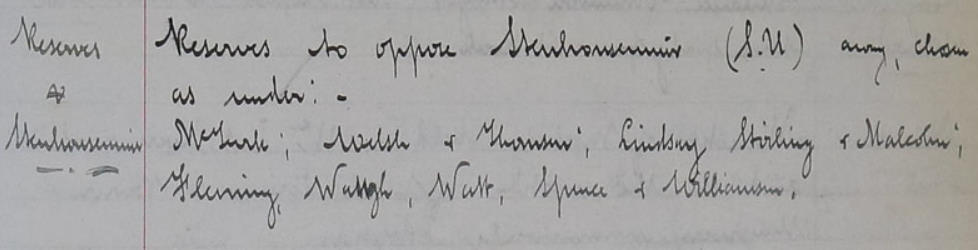 Reserves Reserves to oppose Stenhousemuir (S.U) away, chosen
& as under: -
Stenhousemuir McGurk; Welsh & Thomson; Lindsay Stirling & Malcolm;
Fleming, Watt, Spence & Williamson.